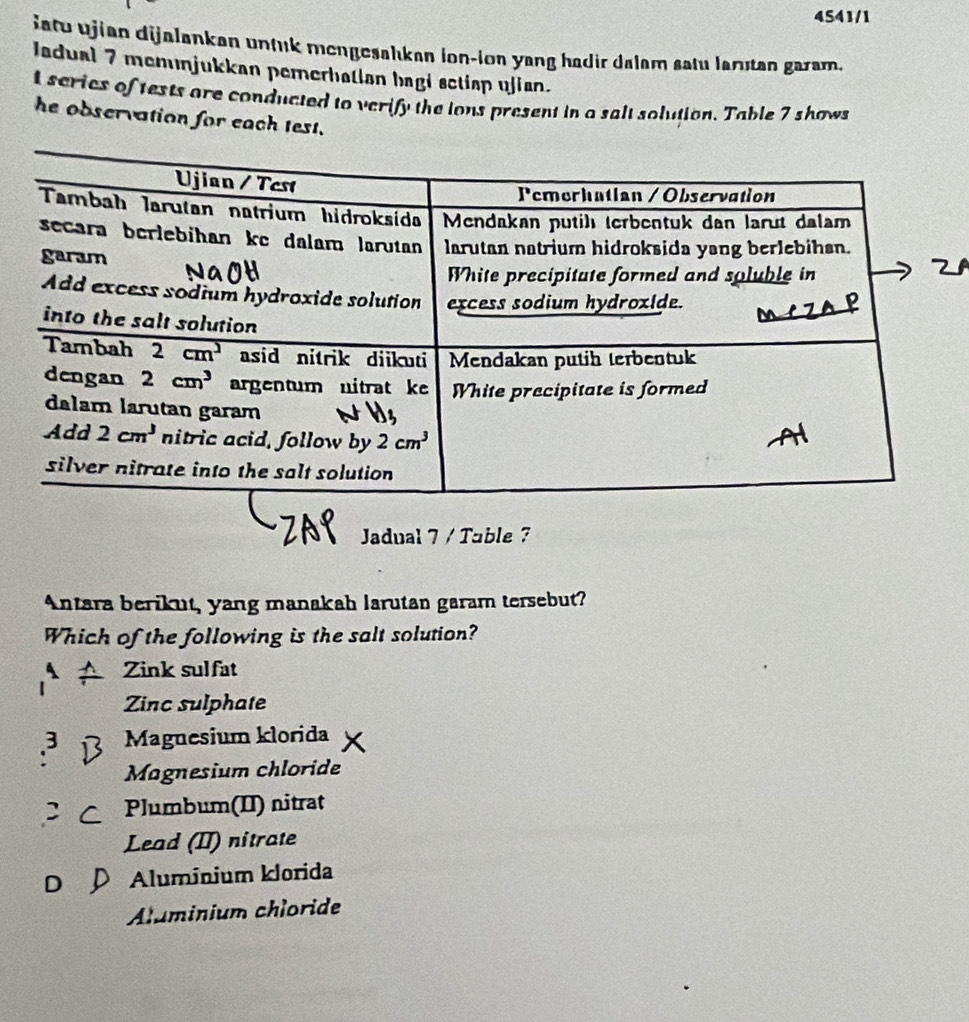 4541/1
Satu ujian dijalankan untuk mengesahkan ion-ion yang hadir dalam satu larutan garam.
Jadual 7 menunjukkan pemerhatian bagi setiap ujian.
A series of tests are conducted to verify the ions present in a salt solution. Table 7 shows
he observation for each test.
Ujian / Test
Pemerhatian / Observation
Tambah larutan natrium hidroksida
secara berlebihan ke dalam larutan
garam
NaOH
Add excess sodium hydroxide solution
into the salt solution
Mendakan putih terbentuk dan larut dalam
larutan natrium hidroksida yang berlebihan.
White precipitate formed and soluble in
excess sodium hydroxide.
ZA
Tambah 2 cm³ asid nitrik diikuti
dengan 2 cm³ argentum nitrat ke
dalam larutan garam
Add 2 cm³ nitric acid, follow by 2 cm³
silver nitrate into the salt solution
Mendakan putih terbentuk
White precipitate is formed
ZAP
Jadual 7 / Table 7
Antara berikut, yang manakah larutan garam tersebut?
Which of the following is the salt solution?
A Zink sulfat
Zinc sulphate
B Magnesium klorida X
Magnesium chloride
C Plumbum(II) nitrat
Lead (II) nitrate
D D Aluminium klorida
Aluminium chloride